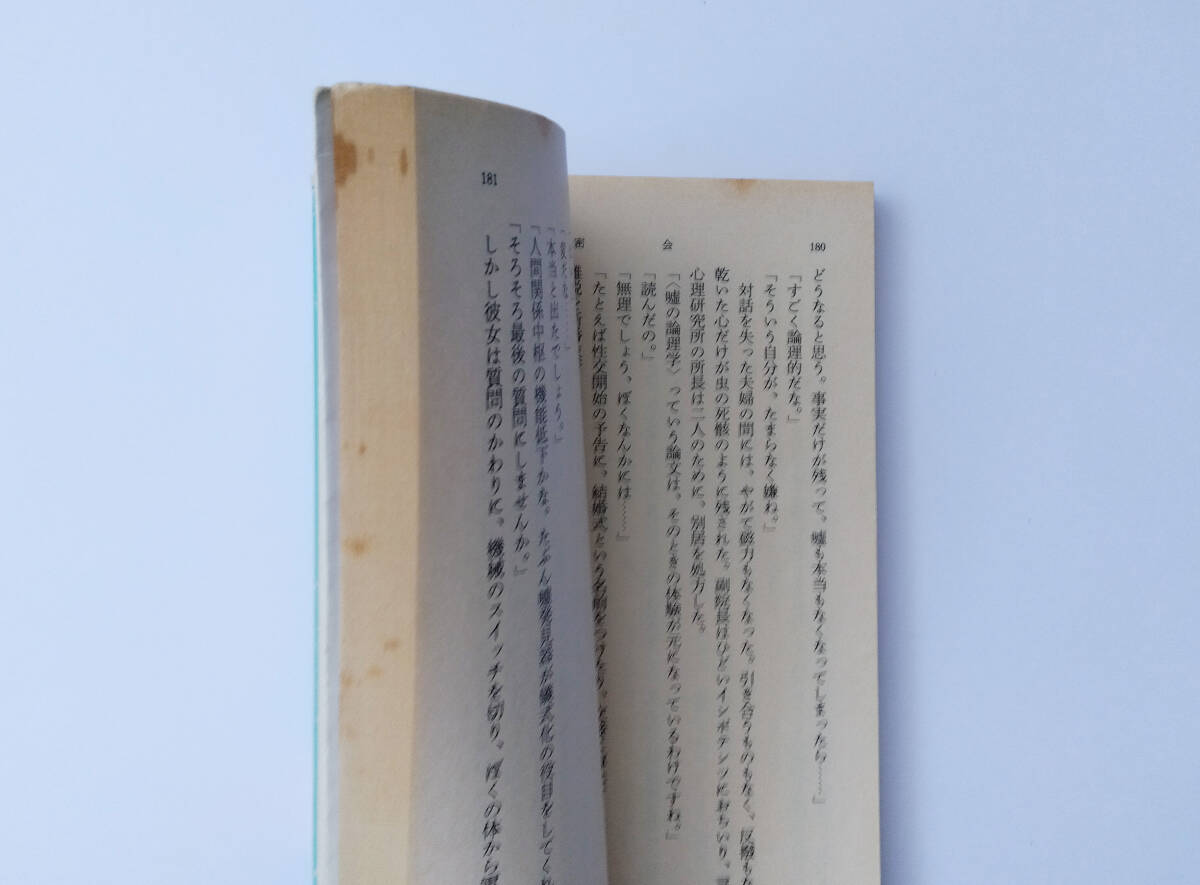 180
会
どうなると思う。事実だけが残って、嘘も本当もなくなってしまったら……」
「すごく論理的だな。」
「そういう自分が、たまらなく嫌ね。」
対話を失った夫婦の間には、やがて磁力もなくなった。引き合うものもなく、反撥もな
乾いた心だけが虫の死骸のように残された。副院長はひどいインポテンツにおちいり、言
心理研究所の所長は二人のために、別居を処方した。
「〈嘘の論理学〉っていう論文は、そのときの体験が元になっているわけですね。」
「読んだの。」
「無理でしょう、ぼくなんかには……」
「たとえば性交開始の予告に、結婚式という名前をつけたり、
密
181
「変だな……」
「本当と出たでしょう。」
「人間関係中枢の機能低下かな。たぶん嘘発見器が儀式化の役目をしてくれ
「そろそろ最後の質問にしませんか。」
しかし彼女は質問のかわりに、機械のスイッチを切り、ぼくの体から電